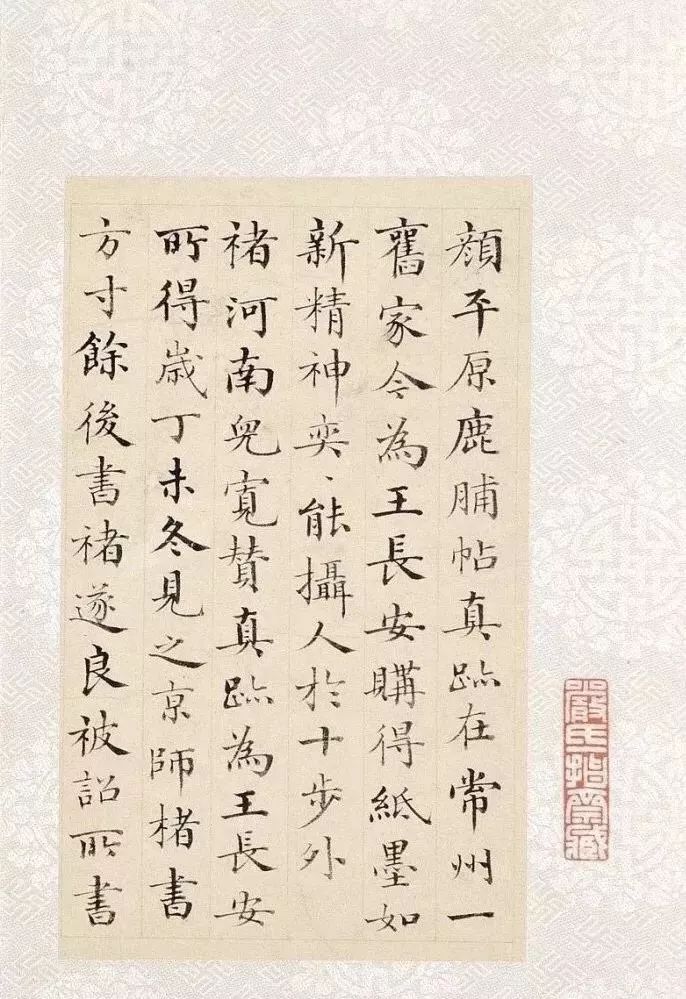 顔平原鹿脯帖真跡在常州一
舊家今為王長安購得紙墨如
新精神奕〻能攝人於十步外
褚河南兒寬賛真跡為王長安
所得歲丁未冬見之京師楮書
方寸餘後書褚遂良被詔所書
嚴氏指㡀藏